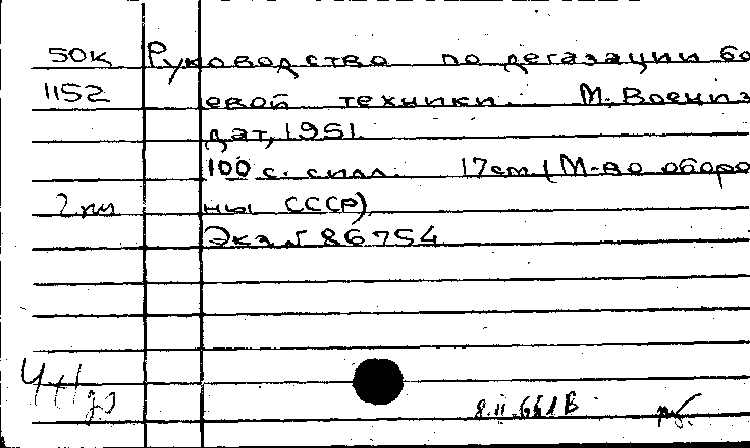 50к Руководство по дегазации бо
1152 евой техники. М., Воениз
дат, 1951.
100 с. с илл. 17 см. (М-во оборо
ны СССР)
Экз N 86754